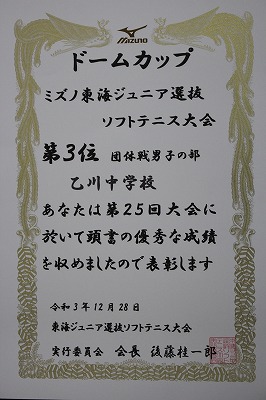 Mizuno
ドームカップ
ミズノ東海ジュニア選抜
ソフトテニス大会
第3位 団体戦男子の部
乙川中学校
あなたは第25回大会に
於いて頭書の優秀な成績
を収めましたので表彰します
令和3年12月28日
東海ジュニア選抜ソフトテニス大会
実行委員会 会長 後藤桂一郎